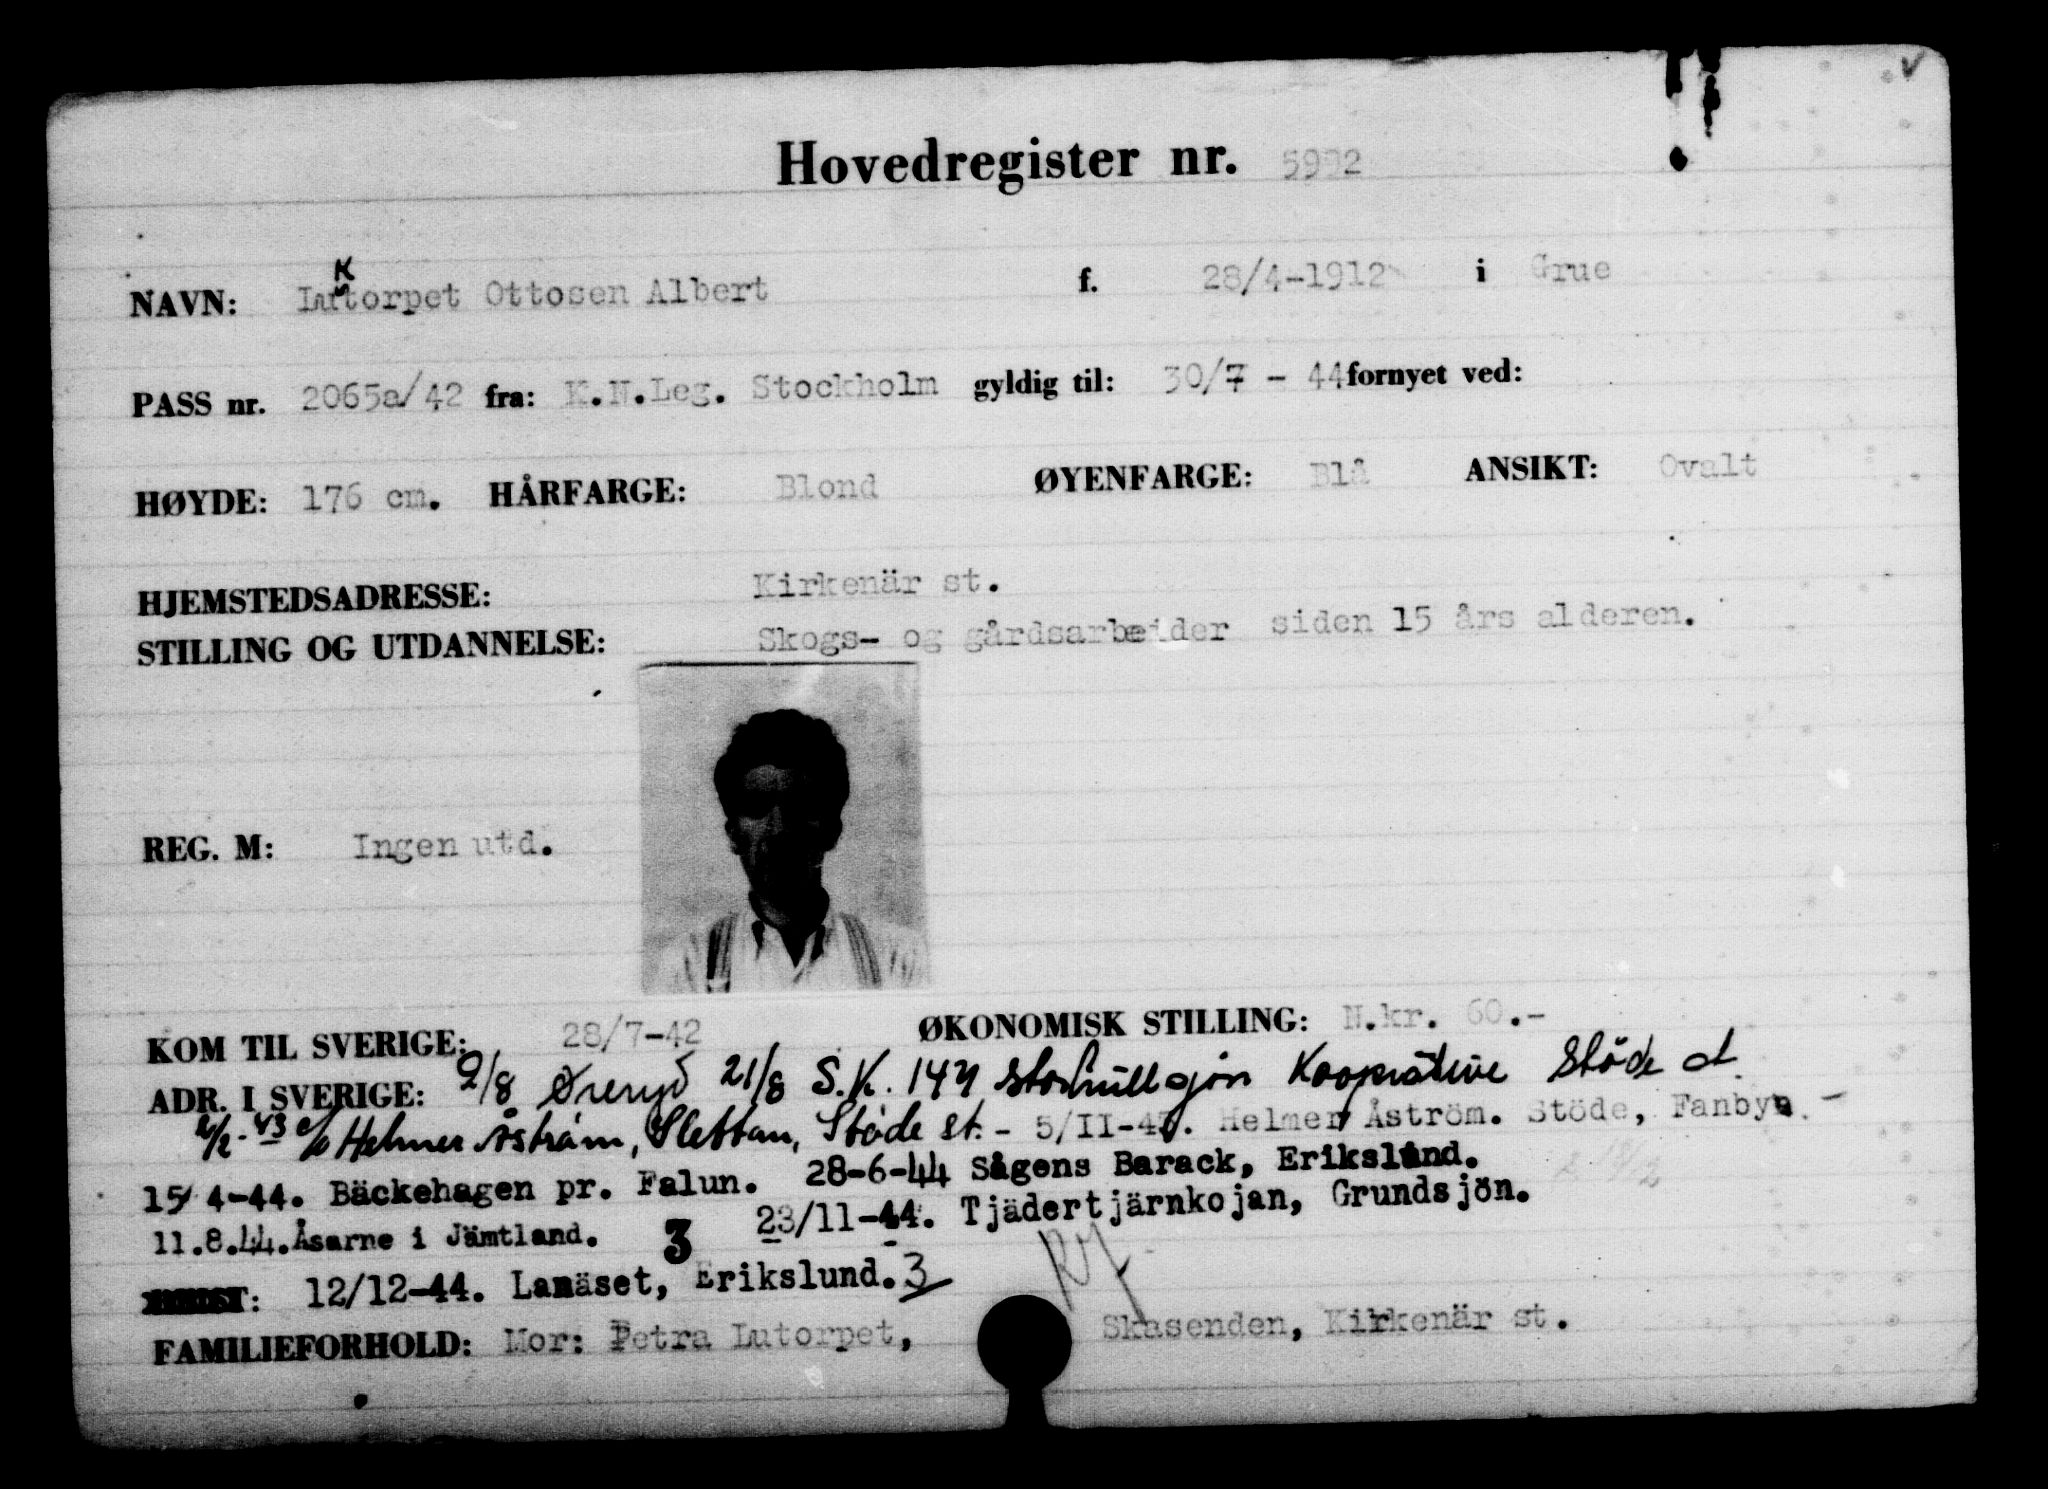 Hovedregister nr. 5992
NAVN: Lutorpet Ottosen Albert f. 28/4-1912 i Grue
PASS nr. 2065a/42 fra: K.N.Leg. Stockholm gyldig til: 30/7 - 44 fornyet ved:
HØYDE: 176 cm. HÅRFARGE: Blond ØYENFARGE: Blå ANSIKT: Ovalt
HJEMSTEDSADRESSE: Kirkenär st.
STILLING OG UTDANNELSE: Skogs- og gårdsarbeider siden 15 års alderen.
REG. M: Ingen utd.
KOM TIL SVERIGE: 28/7-42 ØKONOMISK STILLING: N.kr. 60.-
ADR. I SVERIGE: 9/8 Øreryd 21/8 S.K. 144 Kooperative Stöde st.
c/o Helmer Åström, Slettan, Stöde st. - 5/II-43. Helmer Åström. Stöde, Fanbyn. -
15/4-44. Bäckehagen pr. Falun. 28-6-44 Sågens Barack, Erikslund.
11.8.44. Åsarne i Jämtland. 3 23/11-44. Tjädertjärnkojan, Grundsjön.
12/12-44. Lanäset, Erikslund. 3
FAMILIEFORHOLD: Mor: Petra Lutorpet, Skasenden, Kirkenär st.